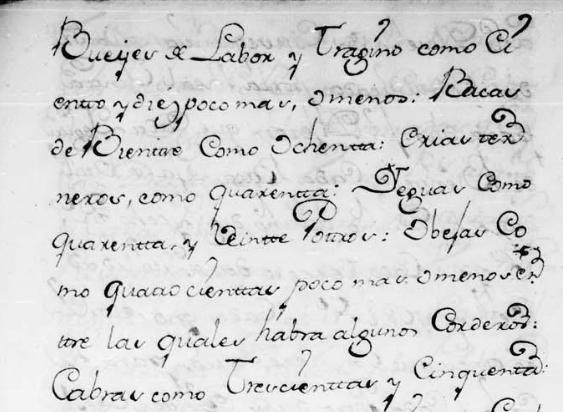 Bueyes de Labor y Tragino como Ci
entto y diez poco mas, omenos: Bacas
de Bienttre Como Ochentta: Crias ter
neros, como quarentta: Yeguas Como
quarentta, y Veintte Pottros: Obejas Co
mo quattrocienttas poco mas omenos en
ttre las quales habra algunos Corderos:
Cabras como Trescienttas y Cinquentta: